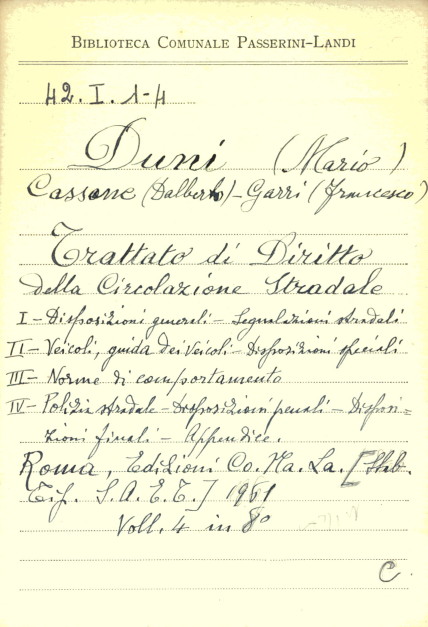 BIBLIOTECA COMUNALE PASSERINI-LANDI
42. I. 1-4
Duni (Mario)
Cassone (Dalberto) - Garri (Francesco)
Trattato di Diritto
della Circolazione Stradale
I - Disposizioni generali - Segnalazioni stradali
II - Veicoli, guida dei Veicoli - Disposizioni speciali
III - Norme di comportamento
IV - Polizia stradale - Disposizioni penali - Disposi-
zioni finali - Appendice.
Roma, Edizioni Co. Na. La. [Stab.
Tip. S.A.E.T.] 1961
Voll. 4 in 8°
C.